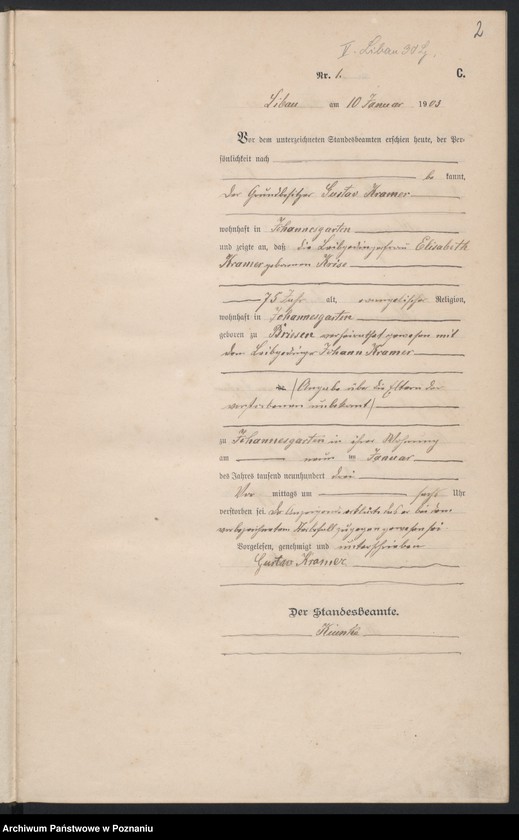 2
V. Libau 30
Nr. 1.
C.
Libau am 10 Januar 1903
Vor dem unterzeichneten Standesbeamten erschien heute, der Per-
sönlichkeit nach
be kannt,
der Grundbesitzer Gustav Kramer
wohnhaft in Johannesgarten
und zeigte an, daß die Leibgedingerfrau Elisabeth
Kramer geborenen Krise
75 Jahr alt, evangelischer Religion,
wohnhaft in Johannesgarten
geboren zu Briesen verheirathet gewesen mit
dem Leibgedinger Johann Kramer
(Angabe über die Eltern der
verstorbenen unbekannt)
zu Johannesgarten in ihrer Wohnung
am neun ten Januar
des Jahres tausend neunhundert drei
Vor mittags um sechs Uhr
verstorben sei. Der Anzeigende erklärte daß er bei dem
vorbezeichneten Sterbefall zugegen gewesen sei
Vorgelesen, genehmigt und unterschrieben
Gustav Kramer
Der Standesbeamte.
Archiwum Państwowe w Poznaniu